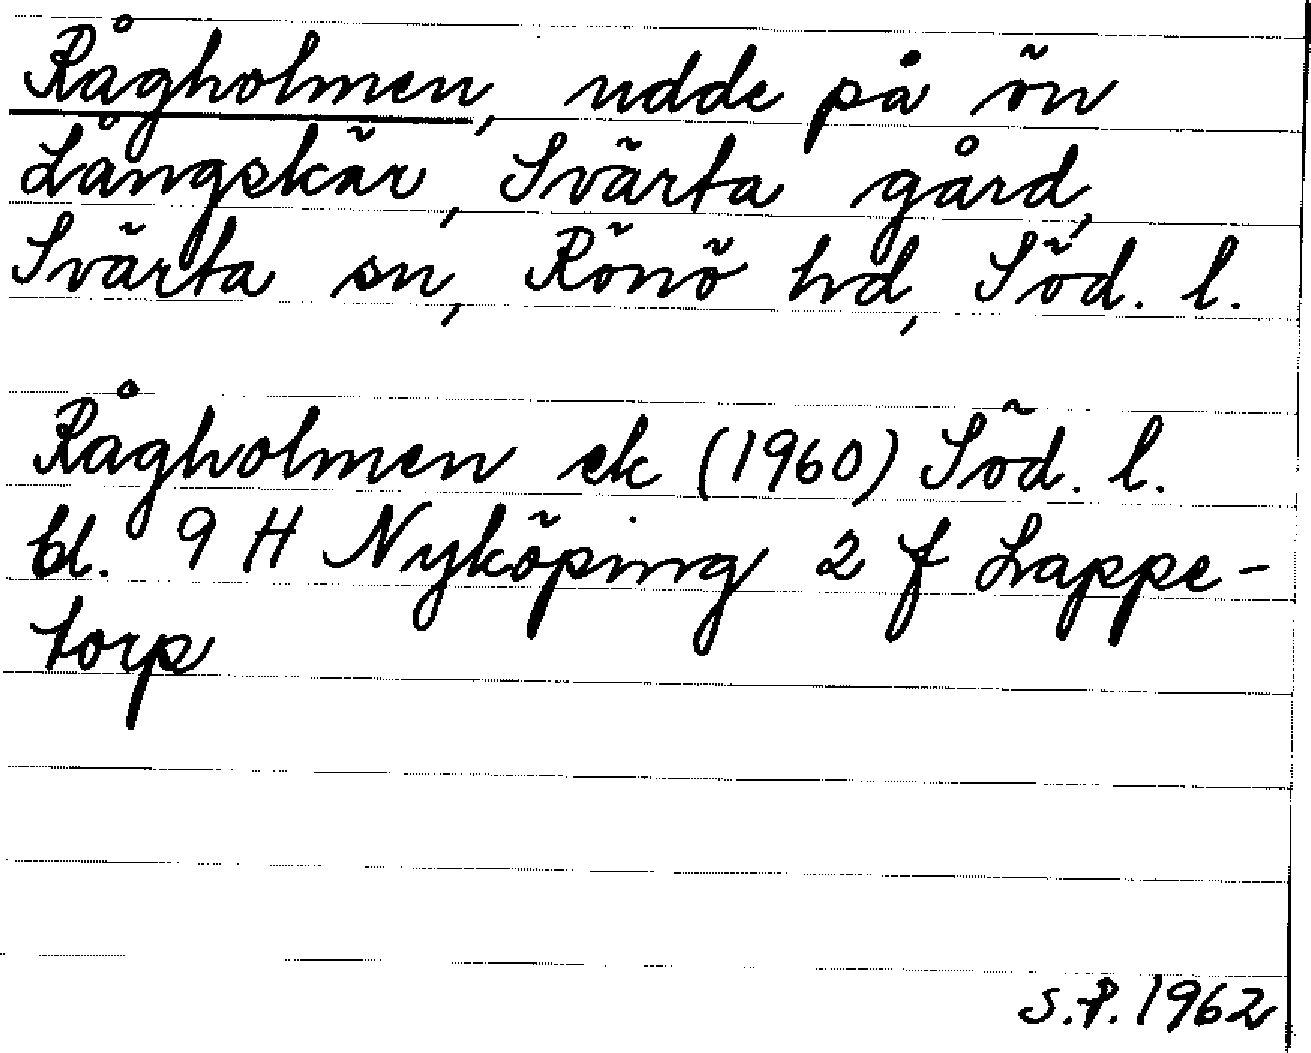 Rågholmen, udde på ön
Långskär, Svärta gård,
Svärta sn, Rönö hd, Söd. l.
Rågholmen ek (1960) Söd. l.
bl. 9 H Nyköping 2 f Lappe-
torp
S.P. 1962